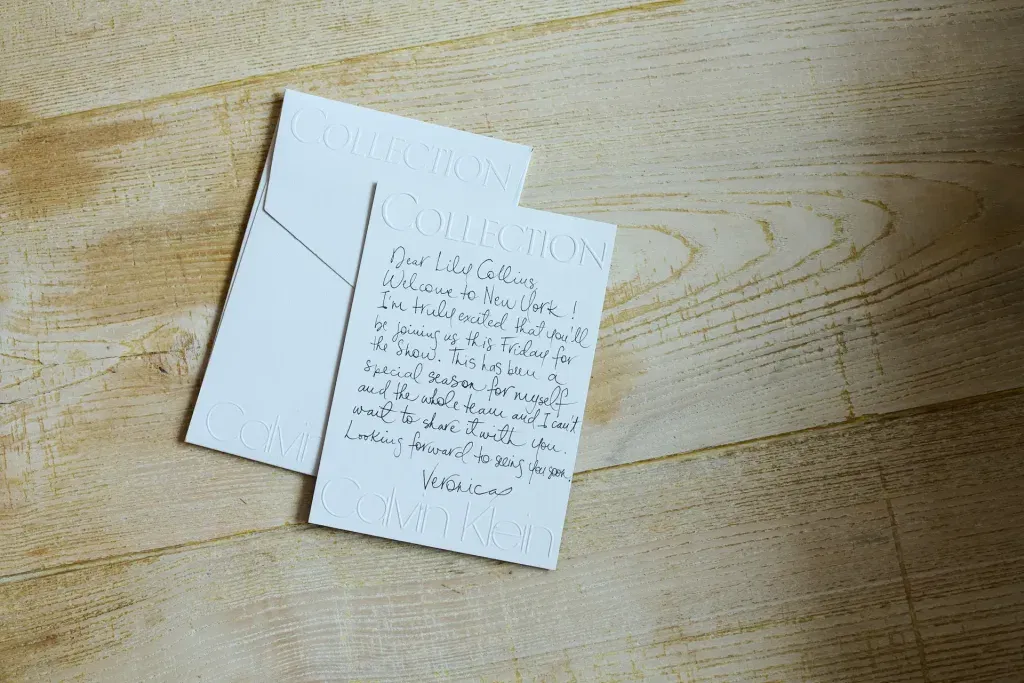 COLLECTION
Calvin
COLLECTION
Dear Lily Collins,
Welcome to New York!
I'm truly excited that you'll
be joining us this Friday for
the Show. This has been a
special season for myself
and the whole team and I can't
wait to share it with you.
Looking forward to seeing you soon.
Veronica
Calvin Klein